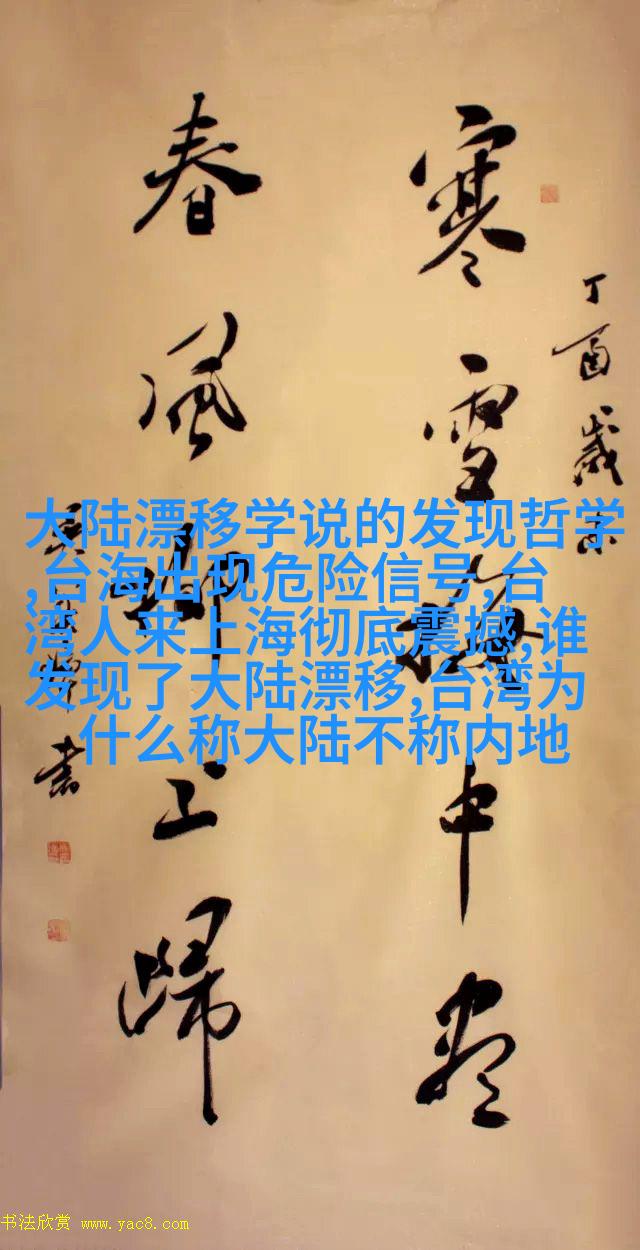 丁酉歲末
寒雪梅中尽
春風柳上歸
書
大陆漂移学说的发现哲学
,台海出现危险信号,台
湾人来上海彻底震撼,谁
发现了大陆漂移,台湾为
什么称大陆不称内地
书法欣赏 www.yac8.com